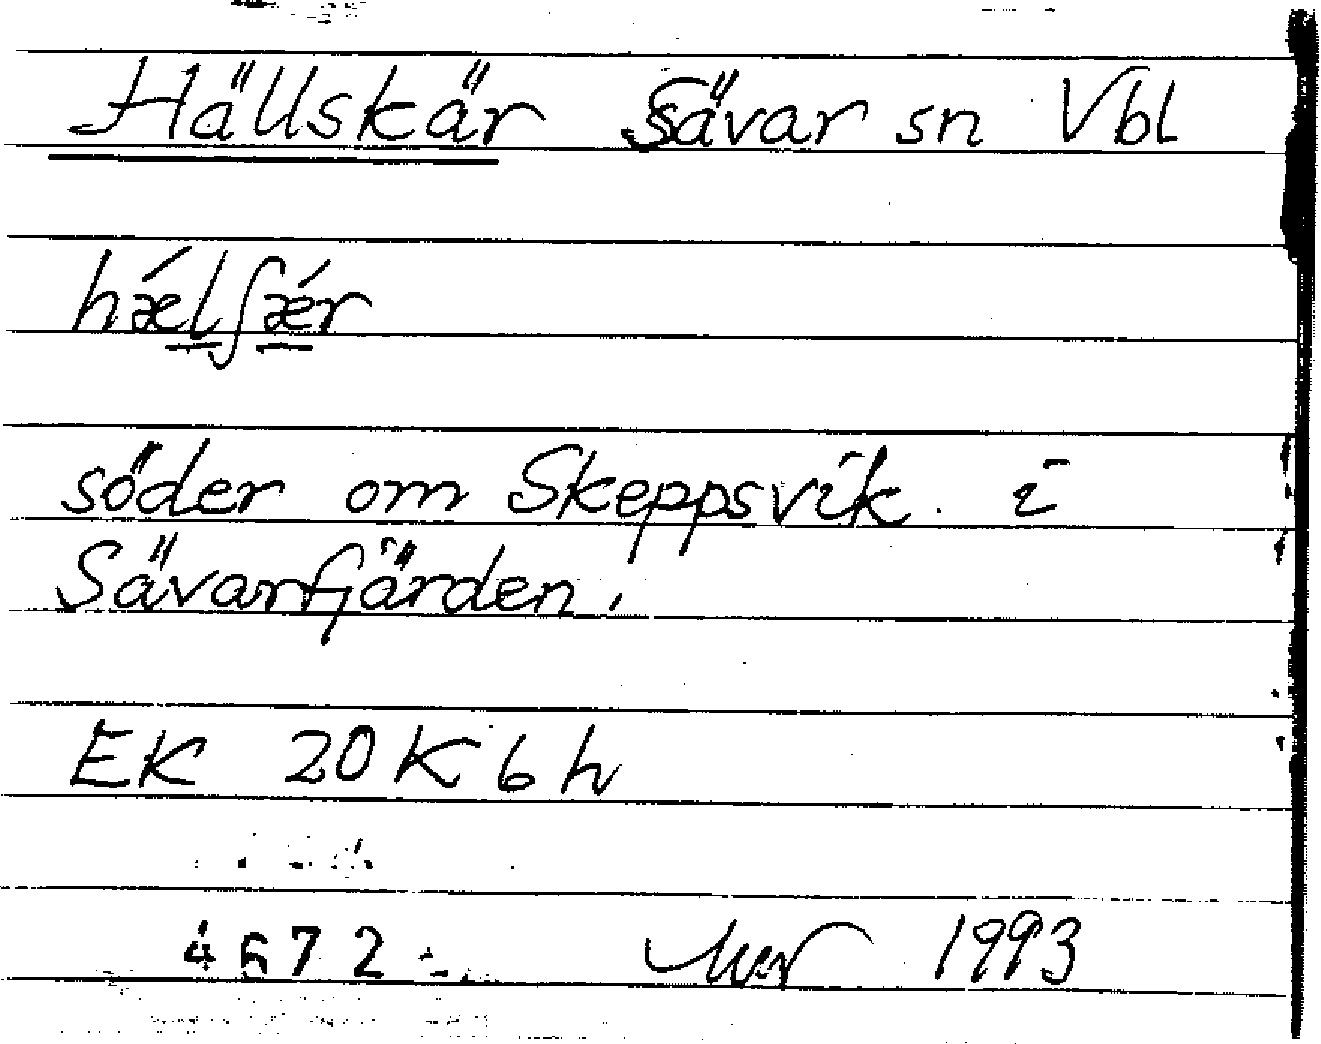 Hällskär Sävar sn Vbl
hǽlʃǽr
söder om Skeppsvik i
Sävarfjärden.
EK 20K6h
4672
1993